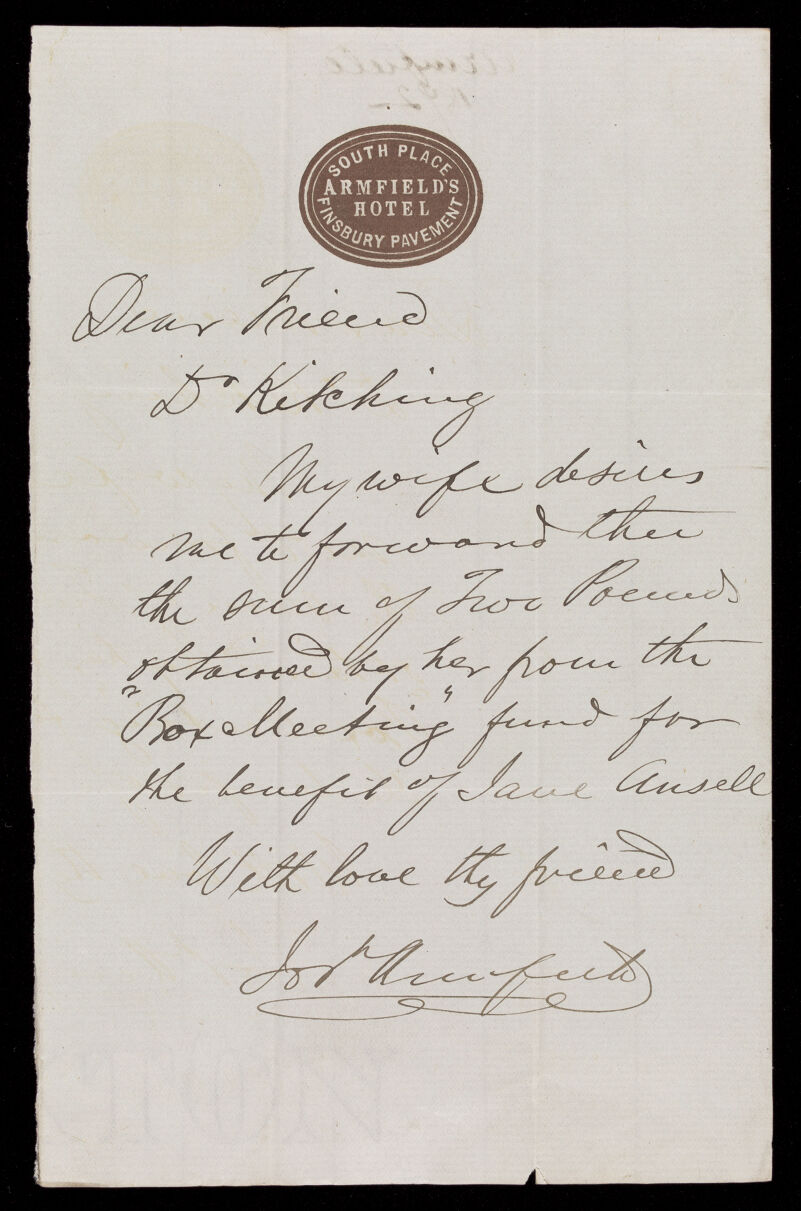 SOUTH PLACE
ARMFIELD'S
HOTEL
FINSBURY PAVEMENT
Dear Friend
Dr Kitching
My wife desires
me to forward thee
the sum of Two Pounds
obtained by her from the
"Box Meeting" fund for
the benefit of Jane Ansell
With love thy friend
Josh Armfield